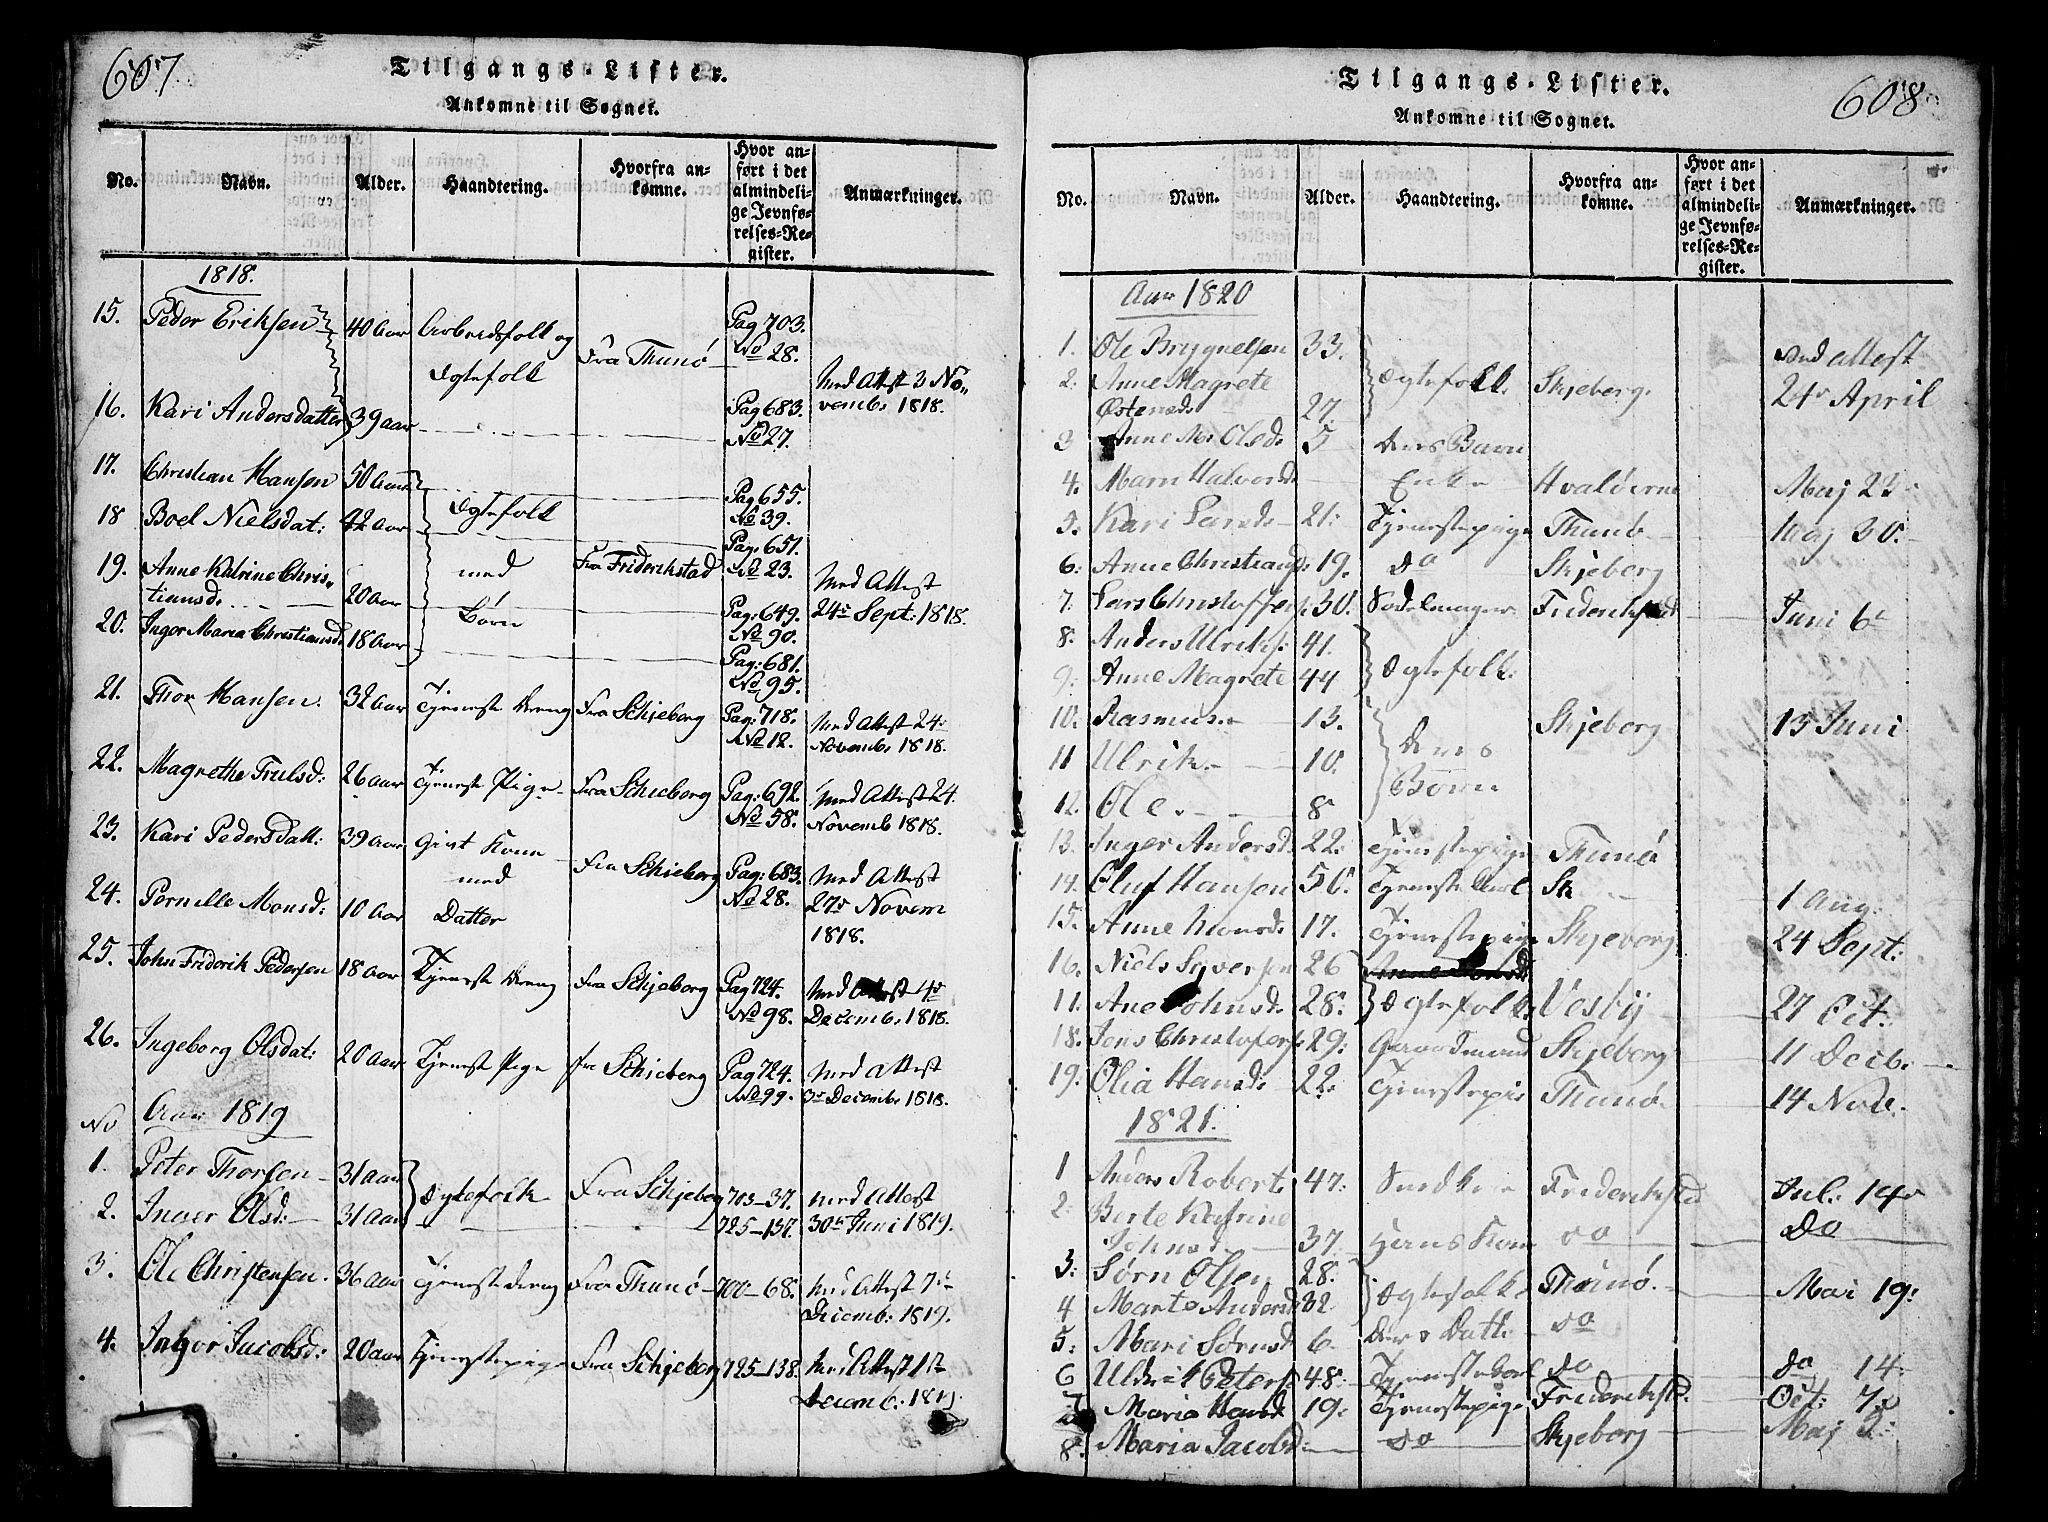 607
Tilgangs-Lister.
Ankomne til Sognet.
No. Navn. Alder. Haandtering. Hvorfra ankomne. Hvor anført i det almindelige Jevnførelses-Register. Anmærkninger.
1818.
15. Peder Eriksen 40 Aar Arbeidsfolk og Fra Thunö Pag 703. No 28.
Egtefolk Med Attest 3 Novemb. 1818.
16. Kari Andersdatter 39 aar Pag 683. No 27.
17. Christian Hansen 50 Aar Pag 655. No 39.
18 Boel Nielsdat: 42 Aar Egtefolk Pag: 651. No 23.
19. Anne Katrine Christiansd. 20 Aar med Børn Fra Friderikstad Pag: 649. No 90. Med Attest 24de Sept: 1818.
20. Inger Maria Christiansd. 18 Aar Pag: 681. No 95.
21. Thor Hansen. 32 Aar Tjeneste Dreng Fra Schjeberg Pag: 718. No 12. Med Attest 24: Novemb. 1818.
22. Magrethe Trulsd: 26 aar Tjeneste Pige Fra Schieberg Pag: 692. No 58. Med Attest 24. Novemb 1818.
23. Kari Pedersdatt: 39 Aar Givt Kone med Fra Schieberg Pag: 683. No 28. Med Attest 27de Novem 1818.
24. Pernille Monsd: 10 Aar Datter
25. John Friderik Pedersen 18 Aar Tjeneste Dreng Fra Schjeberg Pag 724. No 98. Med Attest 4de Decemb. 1818.
26. Ingeborg Olsdat: 20 Aar Tjeneste Pige fra Schieberg Pag 724. No 99. Med Attest 3de Decemb. 1818.
No Aar 1819
1. Peter Thorsen 31 aar Egtefolk Fra Schjeberg 703-37. med Attest
2. Inger Olsd: 31 Aar 725-137. 30te Juni 1819.
3. Ole Christensen. 36 Aar Tjeneste dreng Fra Thunö 700-68. Med Attest 7de Decemb: 1819.
4. Inger Jacobsd: 20 aar Tjenestepige Fra Schjeberg 725-138. Med Attest 1ste Decemb.: 1819
608
Tilgangs-Lister.
Ankomne til Sognet.
No. Navn. Alder. Haandtering. Hvorfra ankomne. Hvor anført i det almindelige Jevnførelses-Register. Anmærkninger.
Aar 1820
1. Ole Brygnelsen 33. med attest
2. Anne Magrete Østensd. 27. Egtefolk. Skjeberg. 24de April
3 Anne M. Olsd. 5 Deres Barn
4. Maren Halvorsd. Enke Hvalöerne Maj 23
5. Kari Larsd. 21: Tjenestepige Thunö Maj 30.
6: Anne Christiansd: 19. do Skjeberg
7. Lars Christoffers. 30. Frideriksstad Juni 6te
8. Anders Ulriks: 41.
9. Anne Magrete 44 Egtefolk.
10. Rasmus. 13. Deres Børn Skjeberg 13 Juni
11 Ulrik. 10.
12. Ole. 8
13. Inger Andersd. 22. Tjenestepige Thunö
14. Oluf Hansen 50. Tjeneste Karl Sk 1 Aug:
15. Anne Monsd. 17. Tjenestepige Skjeberg 24 Sept:
16. Niels Syversen 26
17. Ane Johnsd. 28. Egtefolk Vestby 27 Oct:
18. Jens Christofers. 29: Gaardmand Skjeberg 11 Decb.
19. Olia Hansd. 22. Tjenestepige Thunö 14 Nove.
1821.
1 Anders Roberts 47: Frideriksstad Jul: 14de
2: Berte Katrine Johnsd. 37. Hans Kone do Do
3: Sørn Olsen 28. Egtefolk Thunö. Mai 19:
4 Marte Andersd. 32
5: Mari Sørensd 6. Deres Datter do
6 Uldrik Peters. 48: Tjenestekarl do do 14:
7 Maria Hansd. 19: Tjenestepige Frideriksst. Oct: 7de
8. Maria Jacobsd: do Skjeberg Maj 2: